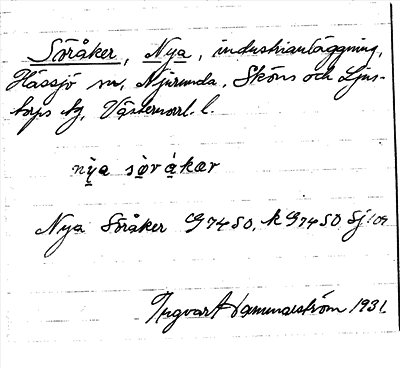 Söråker, Nya, industrianläggning,
Hässjö sn, Njurunda, Sköns och Ljus-
torps tg, Västernorrl. l.
nya sørakær
Nya Söråker G 74 SO, k G 74 SO Sj 109
Ingvart Hammarström 1931